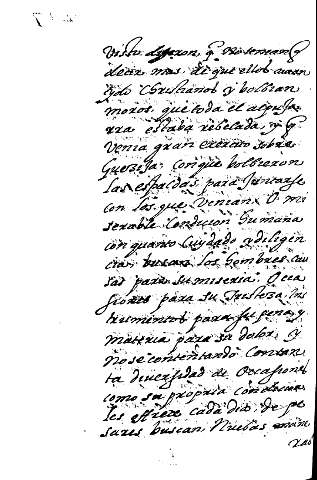 dixeron, q̃ no tenian q̃
decir mas de que ellos auian
sido Christianos y bolbian
moros, que toda el alpuja
rra estaba rebelada, y q̃
venia gran exercito sobre
con que bolbieron
las espaldas para juntarse
con los que venian. O mi
serable Condicion humana
con quanto Cuydado y diligen
cia buscan los hombres cau
sas para su miseria. Oca
siones para su tristeza, ins
trumentos para su pena, y
materia para su dolor. y
no se contentando Con tan
ta diuersidad de Ocassiones
como su propria
les ofrece cada dia de pe
sares buscan Nuebas